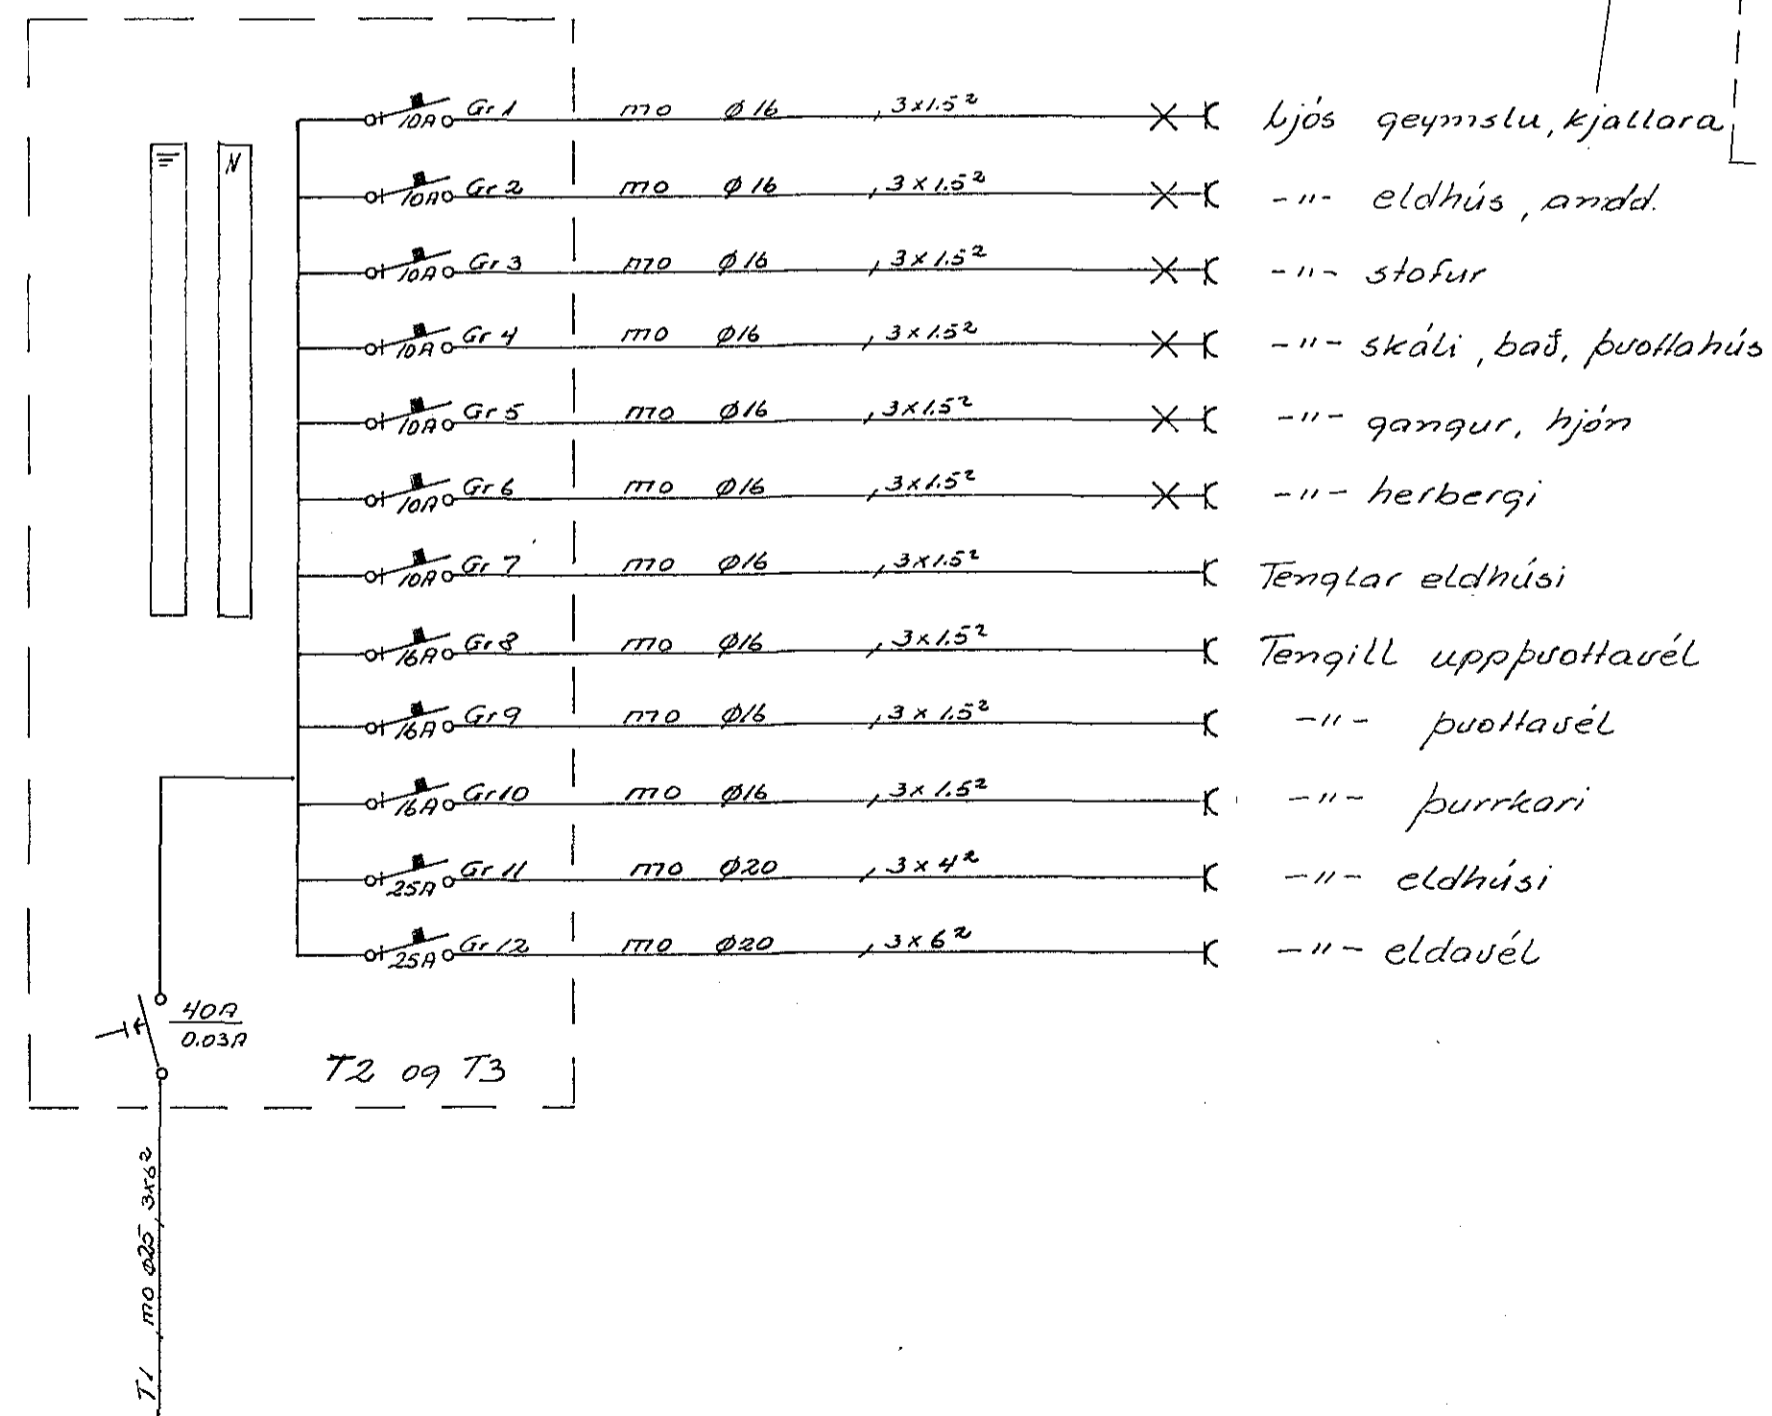 10A Gr 1 mo Ø16 , 3x1.5² Ljós geymslu, kjallara
N
10A Gr 2 mo Ø16 , 3x1.5² -"- eldhús, andd.
10A Gr 3 mo Ø16 , 3x1.5² -"- stofur
10A Gr 4 mo Ø16 , 3x1.5² -"- skáli, bað, þvottahús
10A Gr 5 mo Ø16 , 3x1.5² -"- gangur, hjón
10A Gr 6 mo Ø16 , 3x1.5² -"- herbergi
10A Gr 7 mo Ø16 , 3x1.5² Tenglar eldhúsi
16A Gr 8 mo Ø16 , 3x1.5² Tengill uppþvottavél
16A Gr 9 mo Ø16 , 3x1.5² -"- þvottavél
16A Gr 10 mo Ø16 , 3x1.5² -"- þurrkari
25A Gr 11 mo Ø20 , 3x4² -"- eldhúsi
25A Gr 12 mo Ø20 , 3x6² -"- eldavél
40A
0.03A
T2 og T3
T1 , mo Ø25, 3x6²